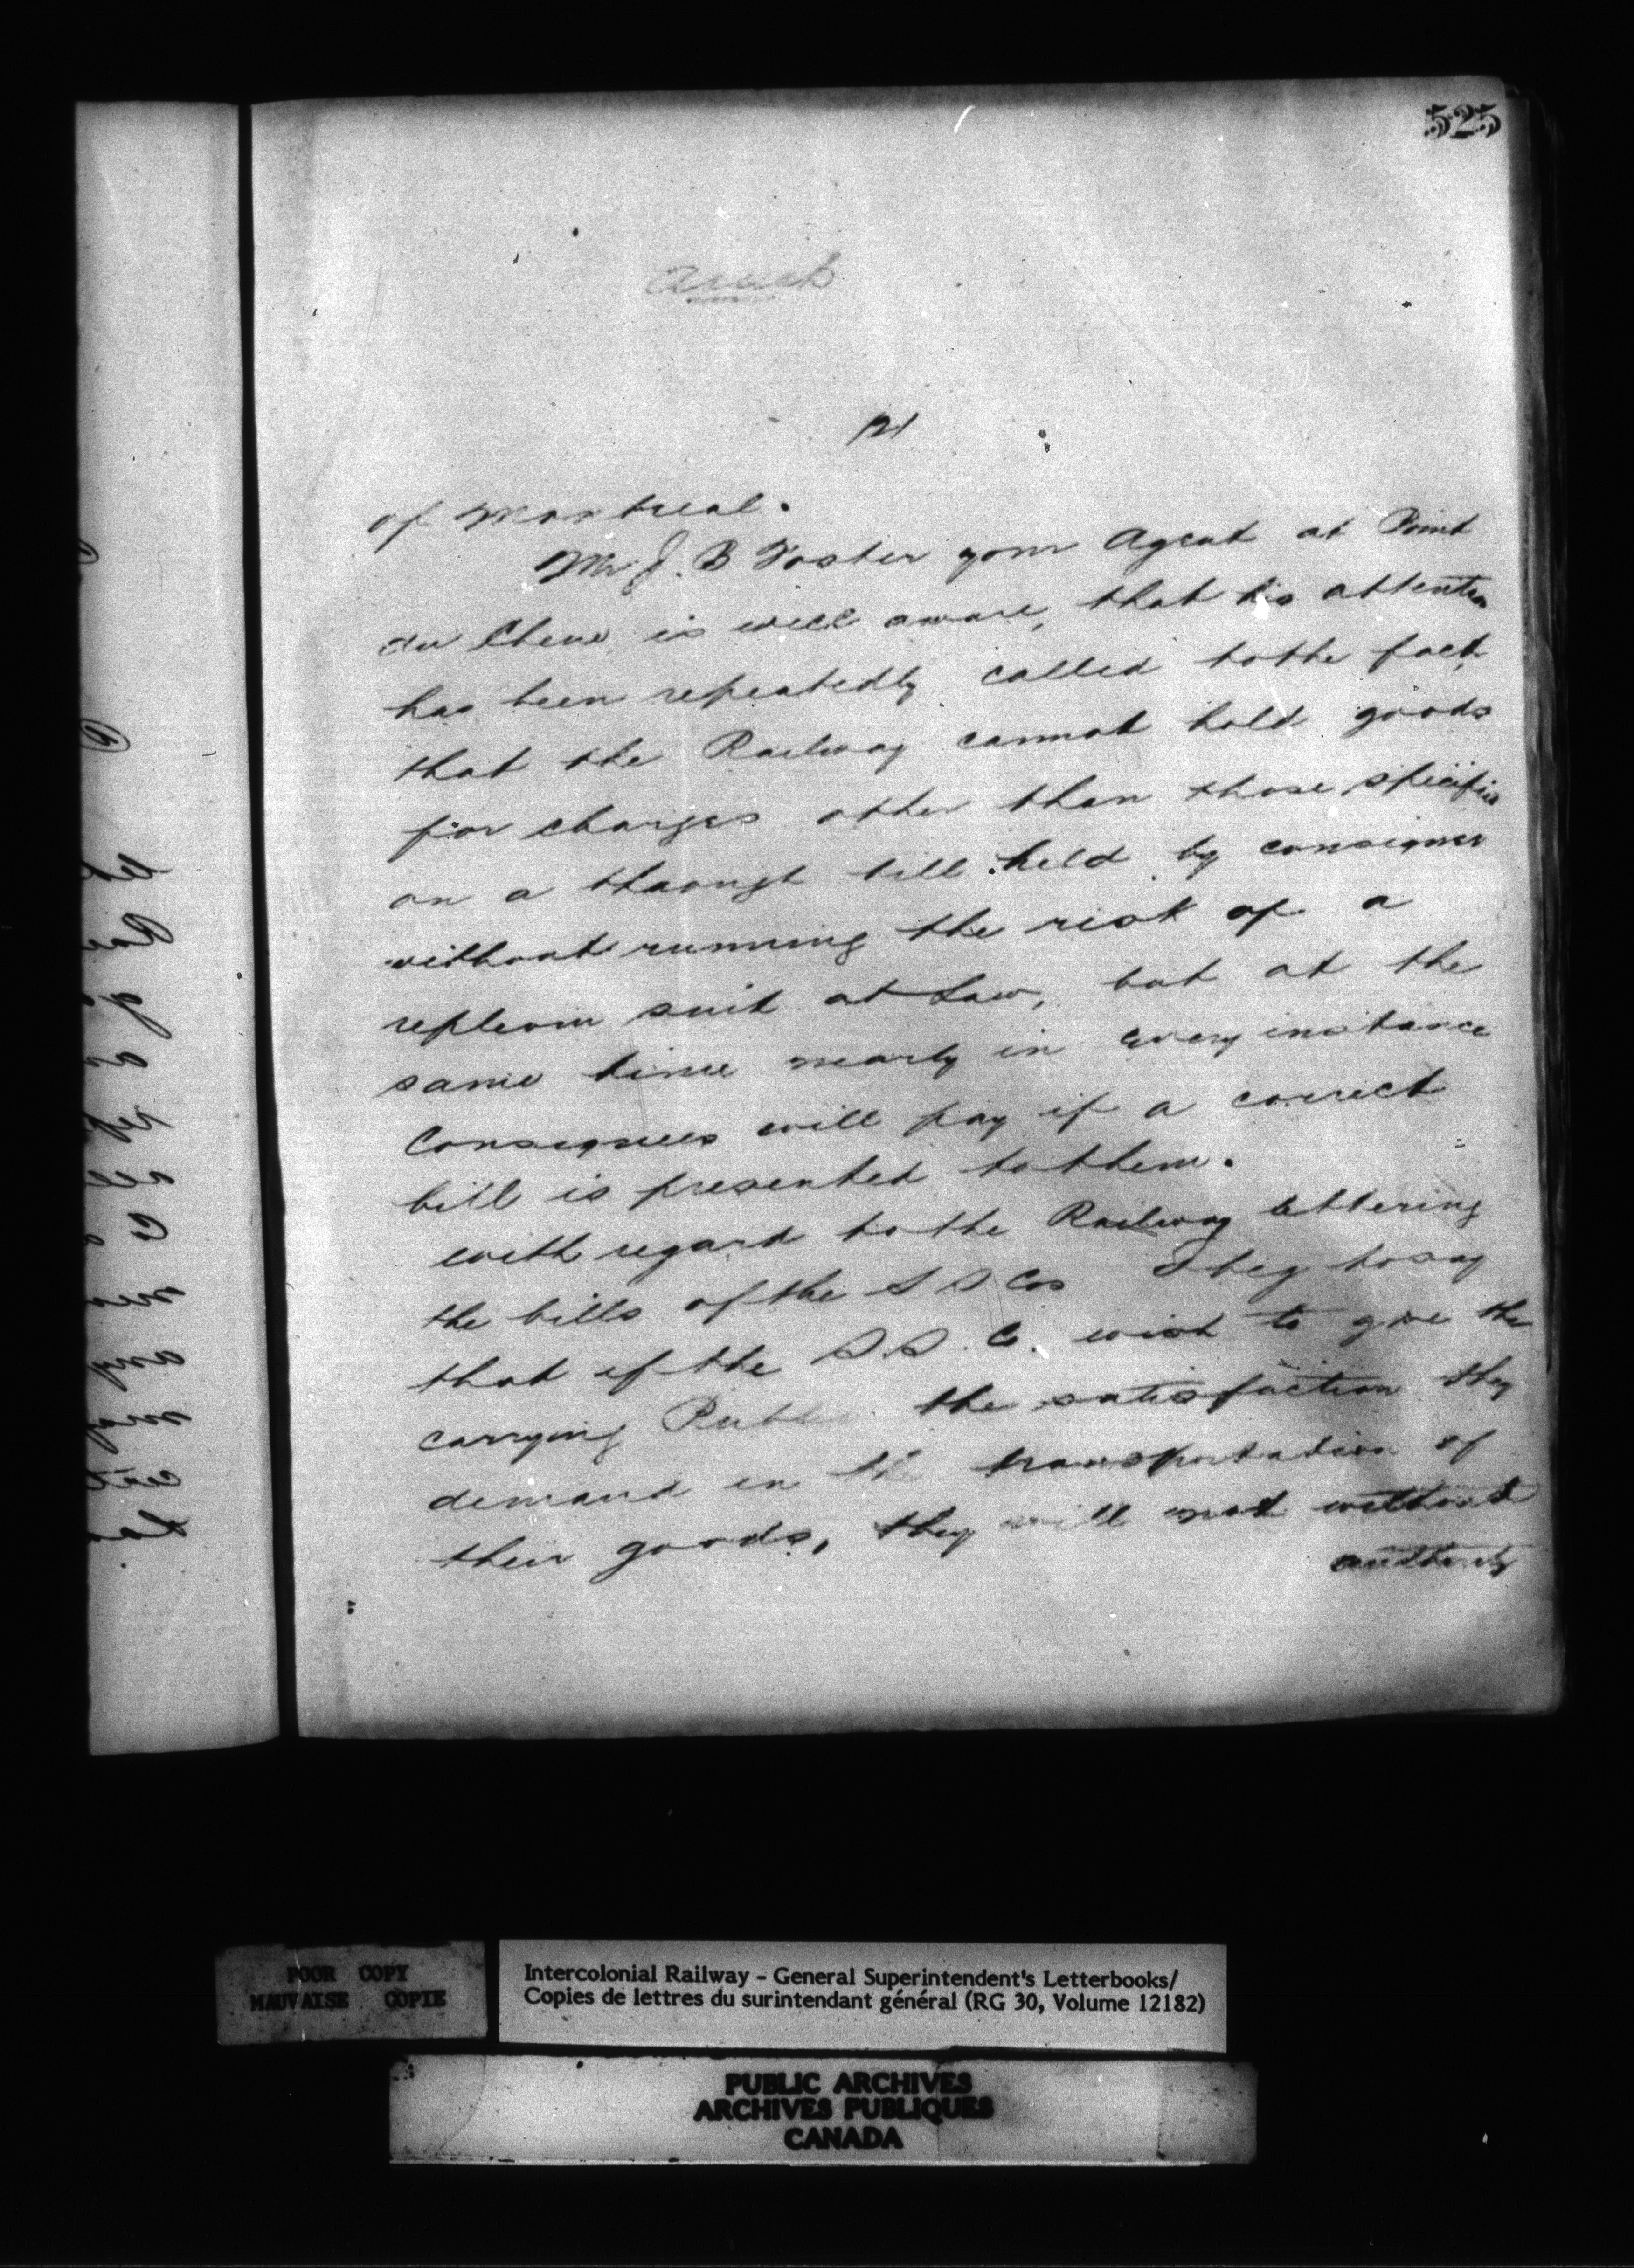 525
121
of Montreal.
Mr J. B Foster your Agent at Point
du Chene is well aware, that his attention
has been repeatedly called to the fact
that the Railway cannot hold goods
for charges other than those specified
on a through bill held by consignee
without running the risk of a
replevin suit at Law, but at the
same time nearly in every instance
Consignees will pay if a correct
bill is presented to them.
with regard to the Railway lettering
the bills of the S S Cos I beg to say
that if the S.S. Co. wish to give the
carrying Public the satisfaction they
demand in the transportation of
their goods, they will not without
authority
POOR COPY
MAUVAISE COPIE
Intercolonial Railway - General Superintendent's Letterbooks/
Copies de lettres du surintendant général (RG 30, Volume 12182)
PUBLIC ARCHIVES
ARCHIVES PUBLIQUES
CANADA